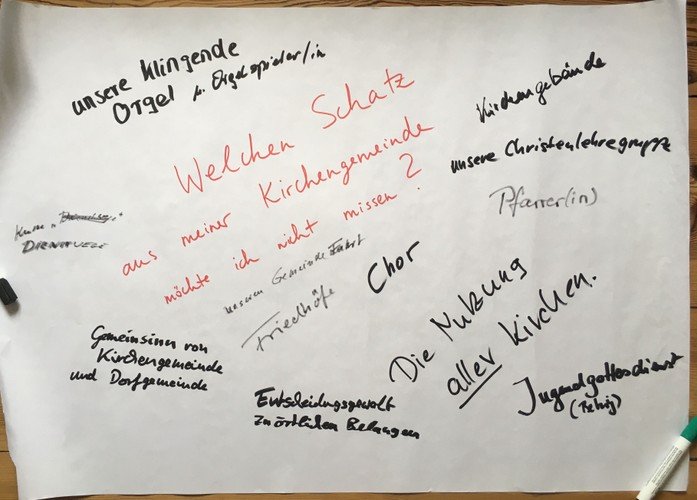 unsere klingende
Orgel u. Orgelspieler/in
Welchen Schatz
aus meiner Kirchengemeinde
möchte ich nicht missen?
Kirchengebäude
unsere Christenlehregruppe
Pfarrer(in)
Kurze
DIENSTWEGE
unseren Gemeinde Fahrt
Friedhöfe
Chor
Die Nutzung
aller Kirchen.
Gemeinsinn von
Kirchengemeinde
und Dorfgemeinde
Entscheidungsgewalt
zu örtlichen Belangen
Jugendgottesdienst